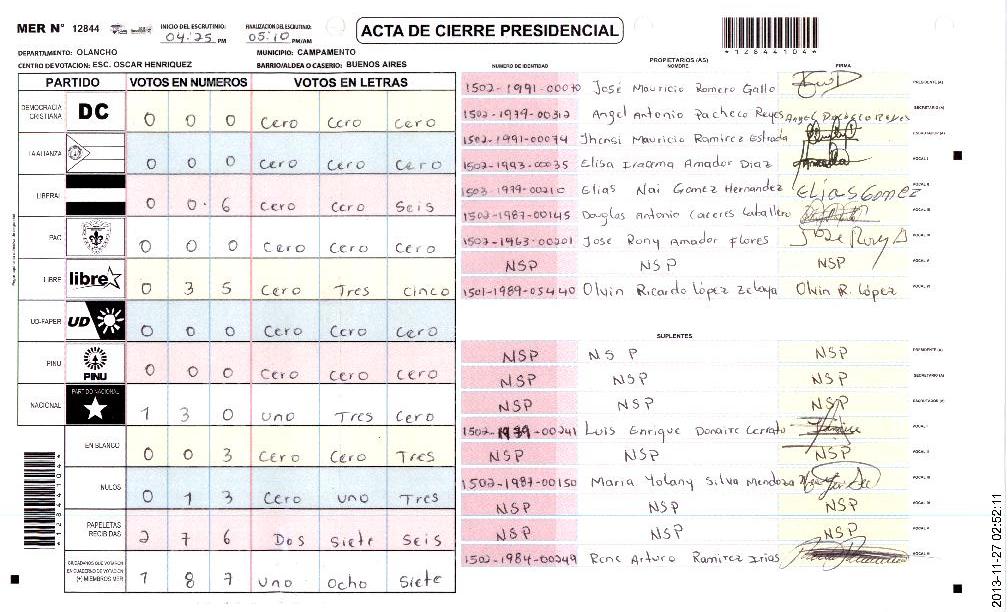 MER N° 12844 INICIO DEL ESCRUTINIO: 04:25 PM FINALIZACION DEL ESCRUTINIO: 05:10 PM/AM ACTA DE CIERRE PRESIDENCIAL
*12844104*
DEPARTAMENTO: OLANCHO MUNICIPIO: CAMPAMENTO
CENTRO DE VOTACION: ESC. OSCAR HENRIQUEZ BARRIO/ALDEA O CASERIO: BUENOS AIRES
PARTIDO VOTOS EN NUMEROS VOTOS EN LETRAS
DEMOCRACIA CRISTIANA DC 0 0 0 Cero Cero Cero
LA ALIANZA 0 0 0 Cero Cero Cero
LIBERAL 0 0 6 Cero Cero Seis
PAC 0 0 0 Cero Cero Cero
LIBRE libre 0 3 5 Cero Tres cinco
UD-FAPER UD 0 0 0 Cero Cero Cero
PINU PINU 0 0 0 Cero Cero Cero
NACIONAL PARTIDO NACIONAL 1 3 0 uno Tres Cero
EN BLANCO 0 0 3 Cero Cero Tres
NULOS 0 1 3 Cero uno Tres
PAPELETAS RECIBIDAS 2 7 6 Dos siete Seis
CIUDADANOS QUE VOTARON EN CUADERNO DE VOTACION (+) MIEMBROS MER 1 8 7 uno ocho Siete
*12844104*
PROPIETARIOS (AS)
NUMERO DE IDENTIDAD NOMBRE FIRMA
1502-1991-00070 José Mauricio Romero Gallo PRESIDENTE (A)
1502-1979-00312 Angel Antonio Pacheco Reyes Angel Pacheco Reyes SECRETARIO (A)
1502-1991-00074 Jhensi Mauricio Ramirez Estrada ESCRUTADOR (A)
1502-1993-00035 Elisa Iracema Amador Diaz VOCAL I
1503-1979-00210 Elias Nai Gomez Hernandez Elias Gomez VOCAL II
1502-1987-00145 Douglas Antonio Caceres Caballero VOCAL III
1502-1963-00201 Jose Rony Amador Flores Jose Rony A VOCAL IV
NSP NSP NSP VOCAL V
1501-1989-05440 Olvin Ricardo López Zelaya Olvin R. López VOCAL VI
SUPLENTES
NSP NSP NSP PRESIDENTE (A)
NSP NSP NSP SECRETARIO (A)
NSP NSP NSP ESCRUTADOR (A)
1502-1979-00241 Luis Enrique Donaire Cerrato VOCAL I
NSP NSP NSP VOCAL II
1502-1987-00150 Maria Yolany Silva Mendoza VOCAL III
NSP NSP NSP VOCAL IV
NSP NSP NSP VOCAL V
1502-1984-00249 Rene Arturo Ramirez Irias VOCAL VI
2013-11-27 02:52:11